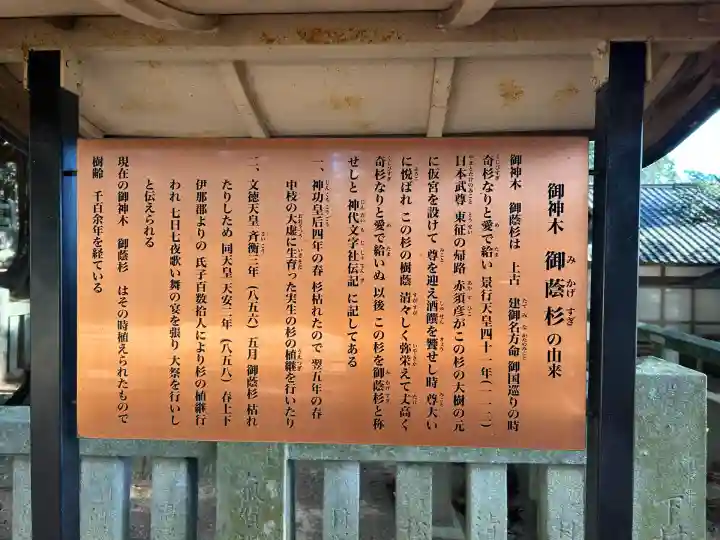 御神木 御蔭杉の由来
御神木 御蔭杉は 上古 建御名方命 御国巡りの時
奇杉なりと愛で給い 景行天皇四十一年(一一一)
日本武尊 東征の帰路 赤須彦がこの杉の大樹の元
に仮宮を設けて 尊を迎え酒饌を饗せし時 尊大い
に悦ばれ この杉の樹蔭 清々しく弥栄えて丈高く
奇杉なりと愛で給いぬ 以後 この杉を御蔭杉と称
せしと 神代文字社伝記 に記してある
一、神功皇后四年の春 杉枯れたので 翌五年の春
中枝の大虚に生育った実生の杉の植継を行いたり
二、文徳天皇 斉衡三年(八五六)五月 御蔭杉 枯れ
たりしため 同天皇 天安二年(八五八)春上下
伊那郡よりの 氏子百数拾人により杉の植継行
われ 七日七夜歌い舞の宴を張り 大祭を行いし
と伝えられる
現在の御神木 御蔭杉 はその時植えられたもので
樹齢 千百余年を経ている